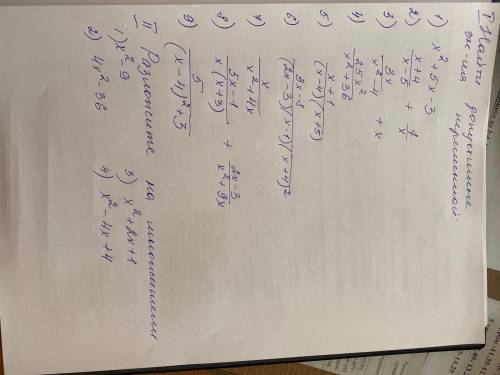 I Найти допустимые
зн-ия переменной:
1) x² + 5x - 3
2) x+4/x-5 + 1/x
3) 3x/x²-4 + x
4) 25x²/x²+36
5) x+1/(x-4)(x+5)
6) 3x-8/(2x-3)(x-1)(x+4)2
7) x/x²+4x
8) 5x-1/x(x+3) + 2x-3/x²+9x
9) 5/(x-4)²+3
II Разложите на множители
1) x²-9 3) x²+2x+1
2) 4x²-36 4) x²-4x+4